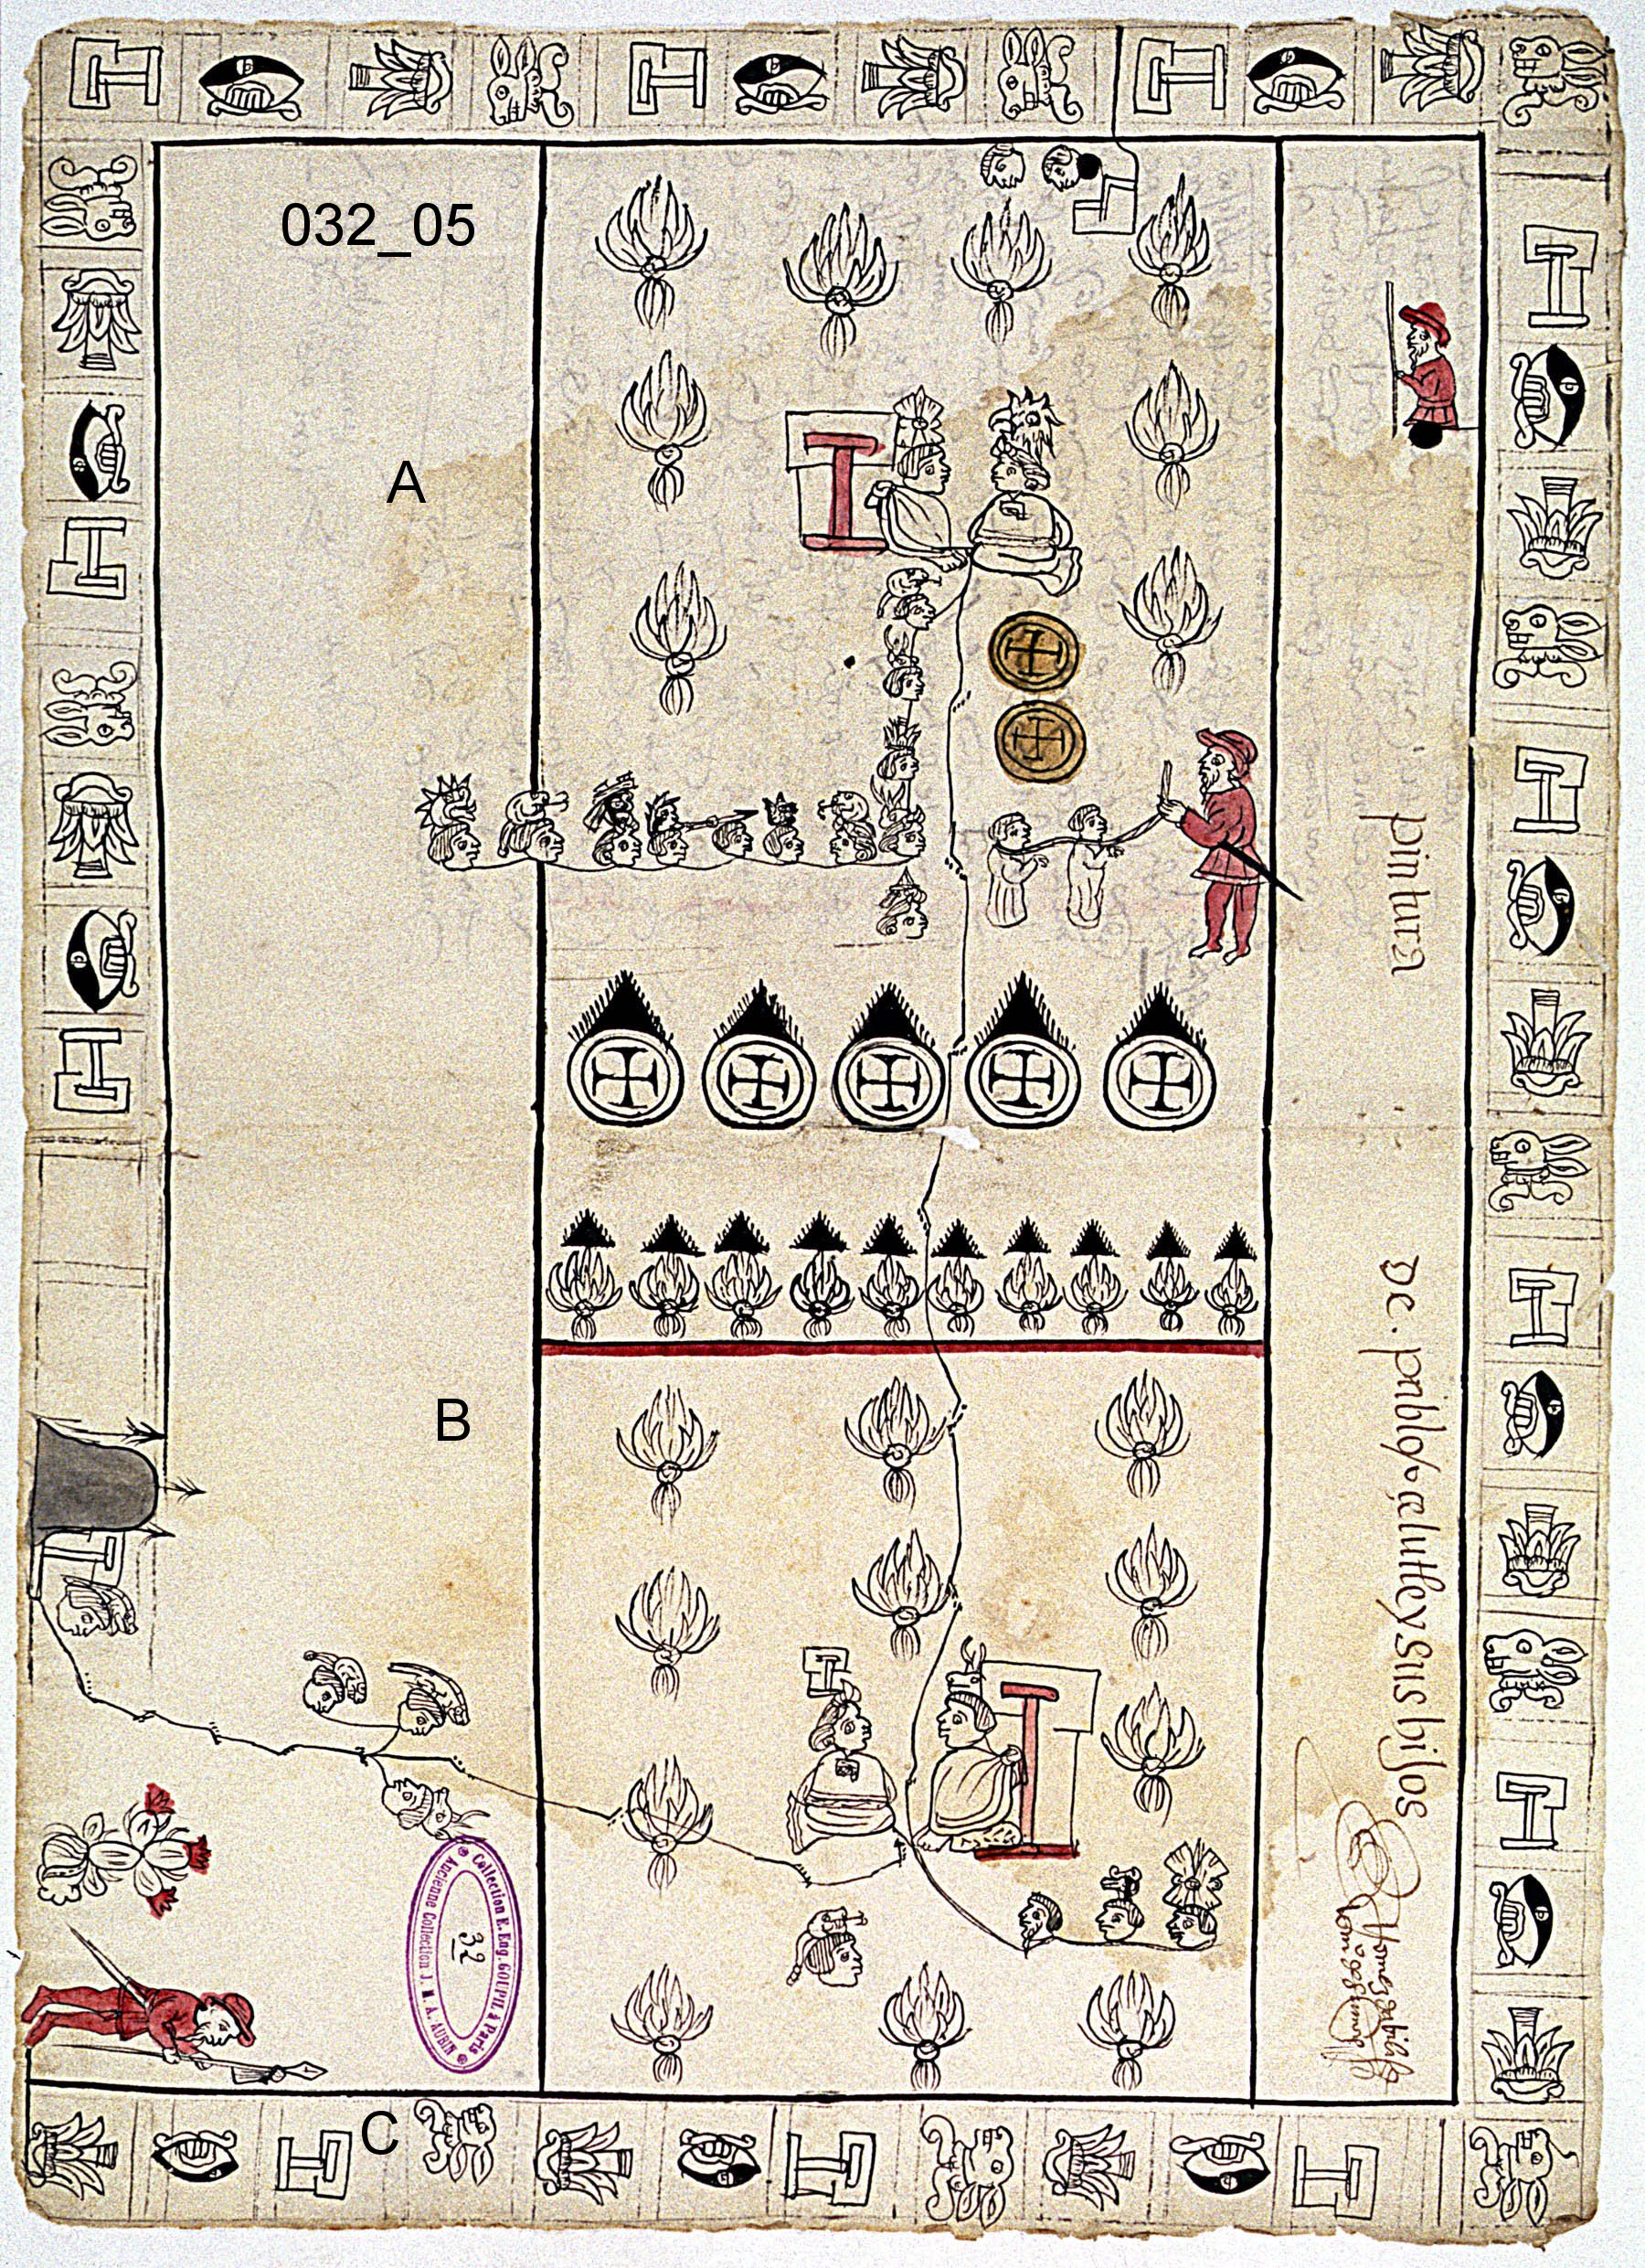 032_05
A
pintura
De. pablo ocelutl y sus hijos
B
Collection E. Eug. GOUPIL à Paris
32
Ancienne Collection J. M. A. AUBIN
C